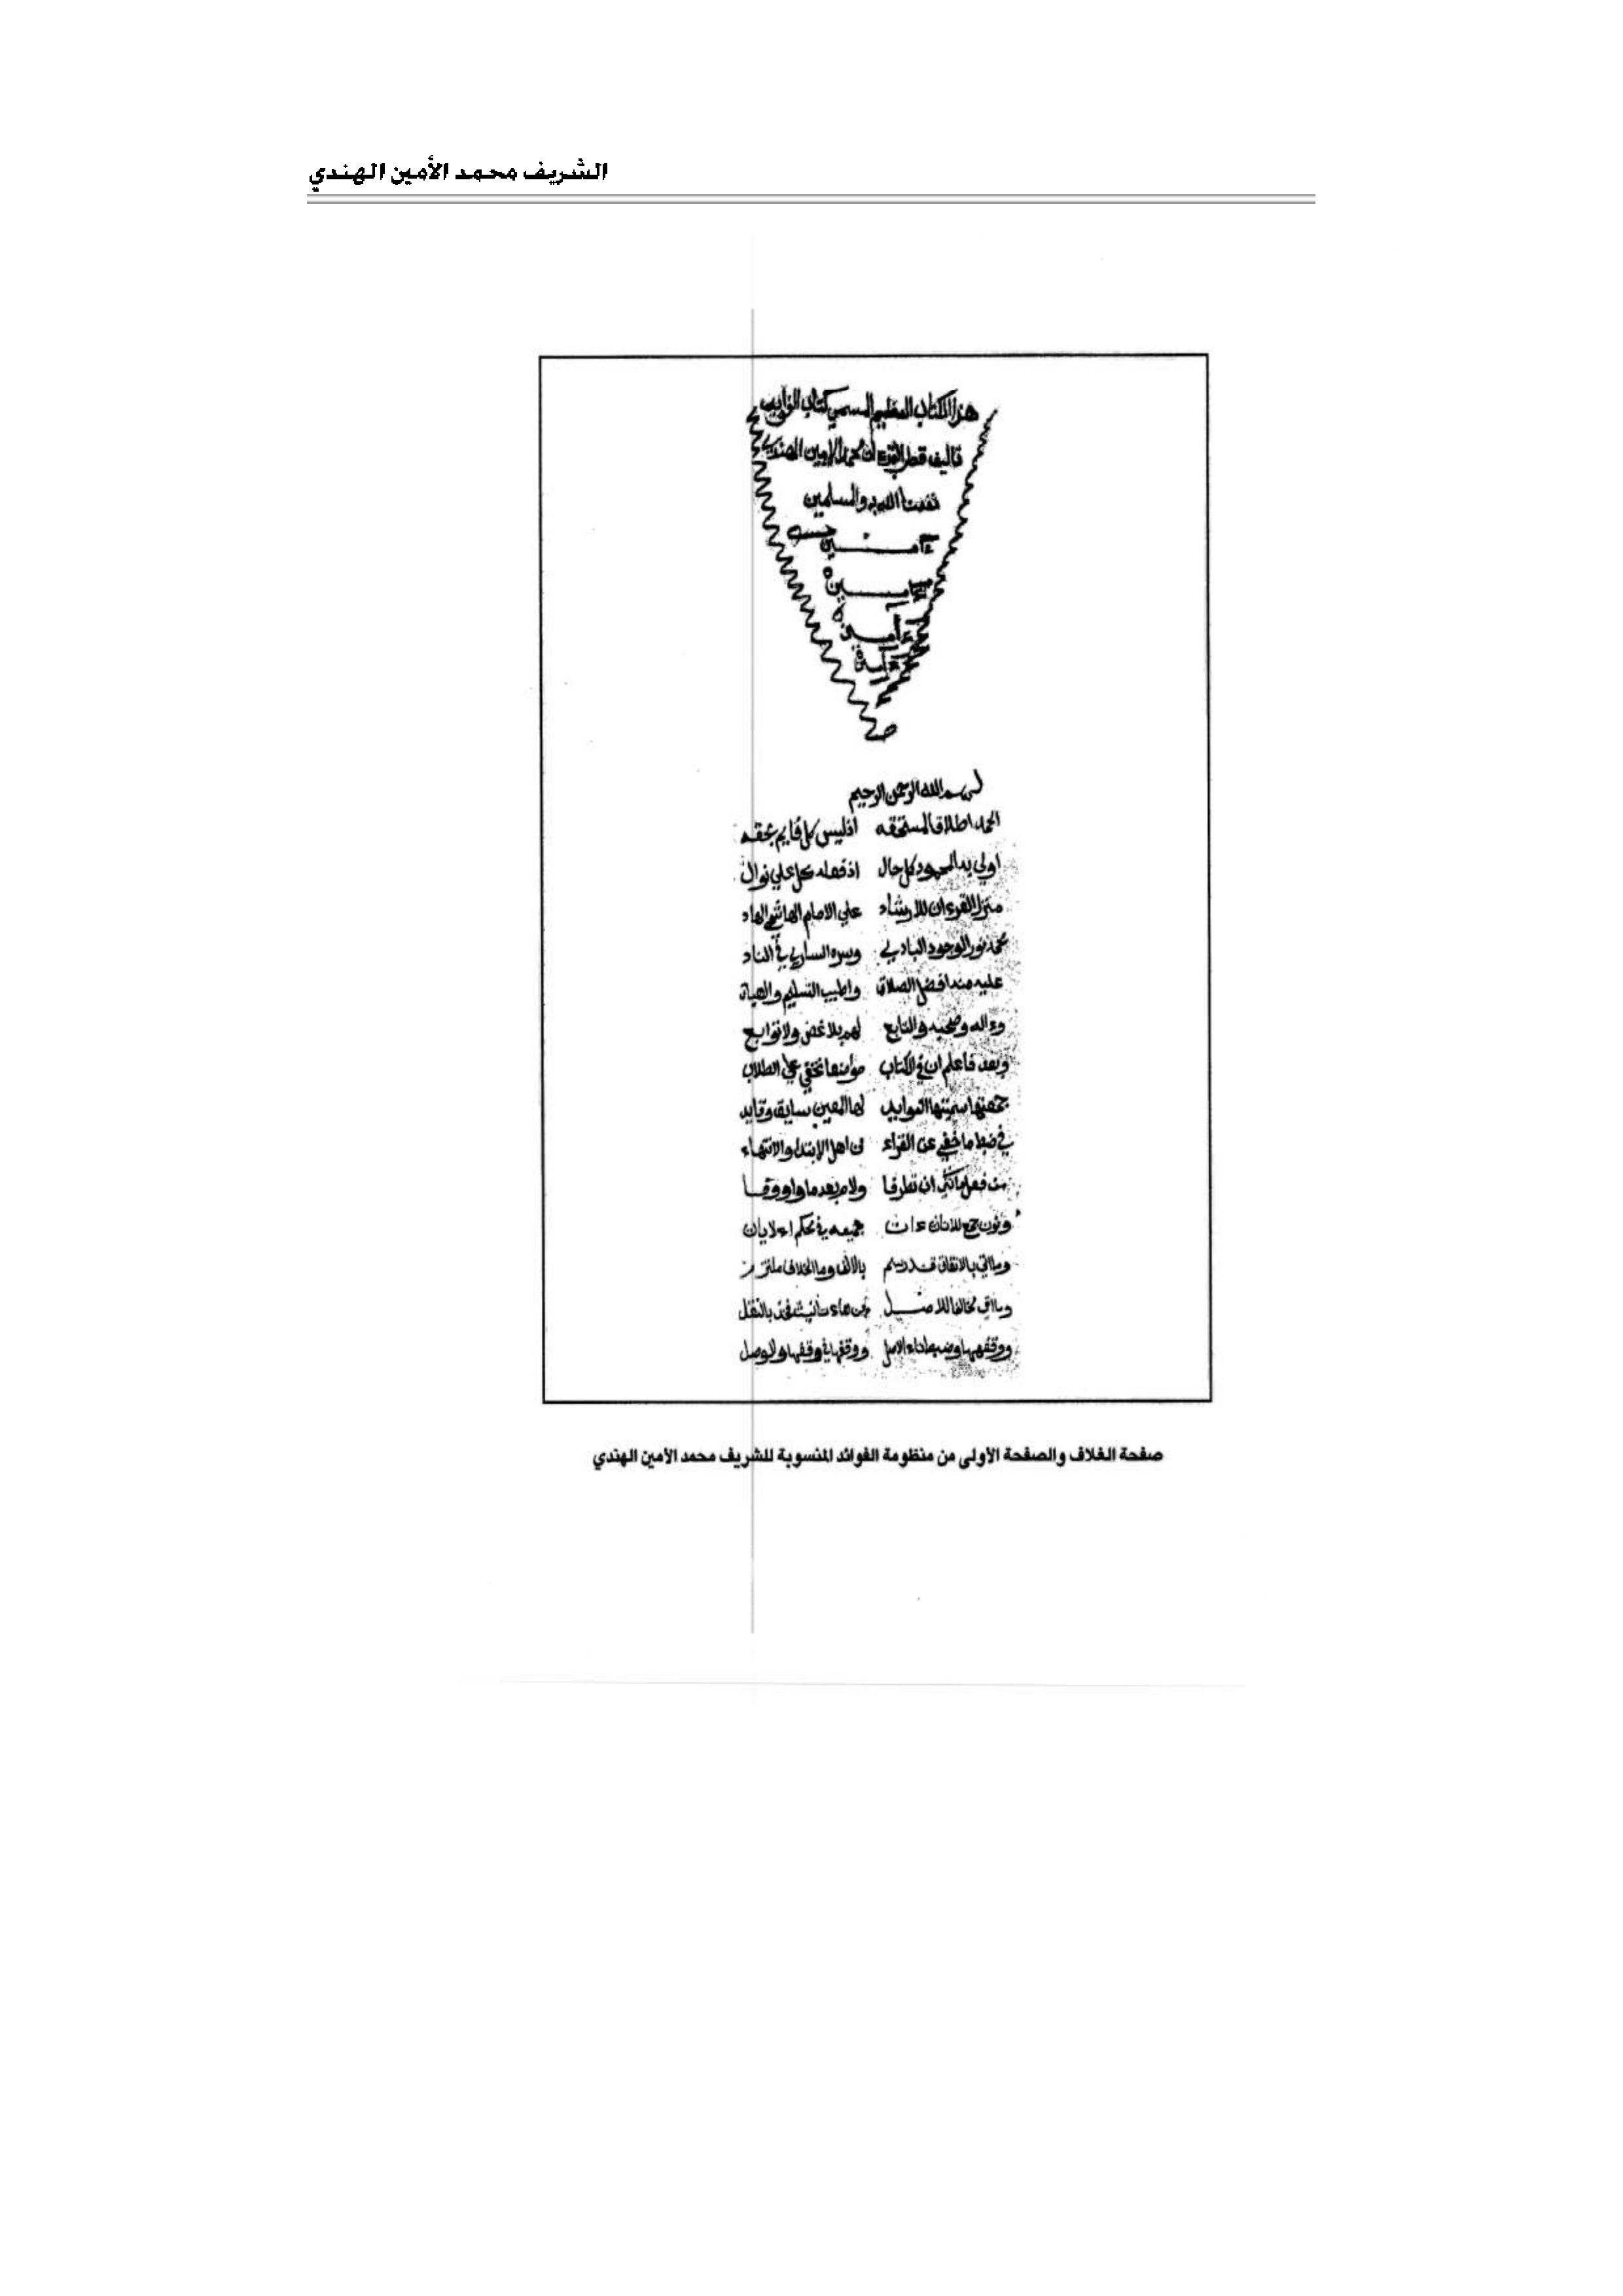 الشريف محمد الأمين الهندي
هذا الكتاب العظيم المسمي كتاب الفوايد
تاليف قطب القرءان محمد الامين الهندي
نفعنا الله به والمسلمين
ءامين
ءامين
ءامين
ءامين
بسم الله الرحمن الرحيم
الحمد اطلاقا لمستحقه اذ ليس كل قايم بحقه
اولي به المحمود كل حال اذ فضله كل علي نوال
منزل القرءان للارشاد علي الامام الهاشمي الهاد
محمد نور الوجود البادي وسره الساري في الناد
عليه منه افضل الصلاة واطيب التسليم والهبات
وءاله وصحبه والتابع لهم بلا غض ولا توابع
وبعد فاعلم ان في الكتاب مواضعا تخفي علي الطلاب
جمعتها سميتها الفوايد لها المعين سايق وقايد
في ضبط ما خفي عن القراء من اهل الابتداء والانتهاء
من فعل ان تطرفا ولام بعدها واو وقفا
ونون جمع للاناث ءات جميعه في محكم الايات
وما اتي بالاتفاق قد رسم بالالف وما الخلاف ملتزم
وما اتي مخالفا للاصل من هاء تانيث فخذ بالنقل
ووقفهم وضبط اداء الاصل ووقفها في وقفها والوصل
صفحة الغلاف والصفحة الأولى من منظومة الفوائد المنسوبة للشريف محمد الأمين الهندي